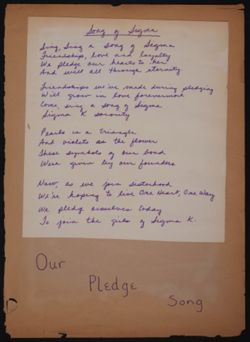 Song of Sigma
Sing, Sing a Song of Sigma
Friendship, love and loyalty
We pledge our hearts to her
And will all through eternity
Friendships we've made during pledging
Will grow in love forevermore
Come, sing a song of Sigma
Sigma K sorority
Pearls in a triangle
And violets as the flower
These symbols of our bond
Were given by our founders
Now, as we join sisterhood
We're hoping to live One Heart, One Way
We pledge ourselves today
To join the girls of Sigma K.
Our
Pledge
Song